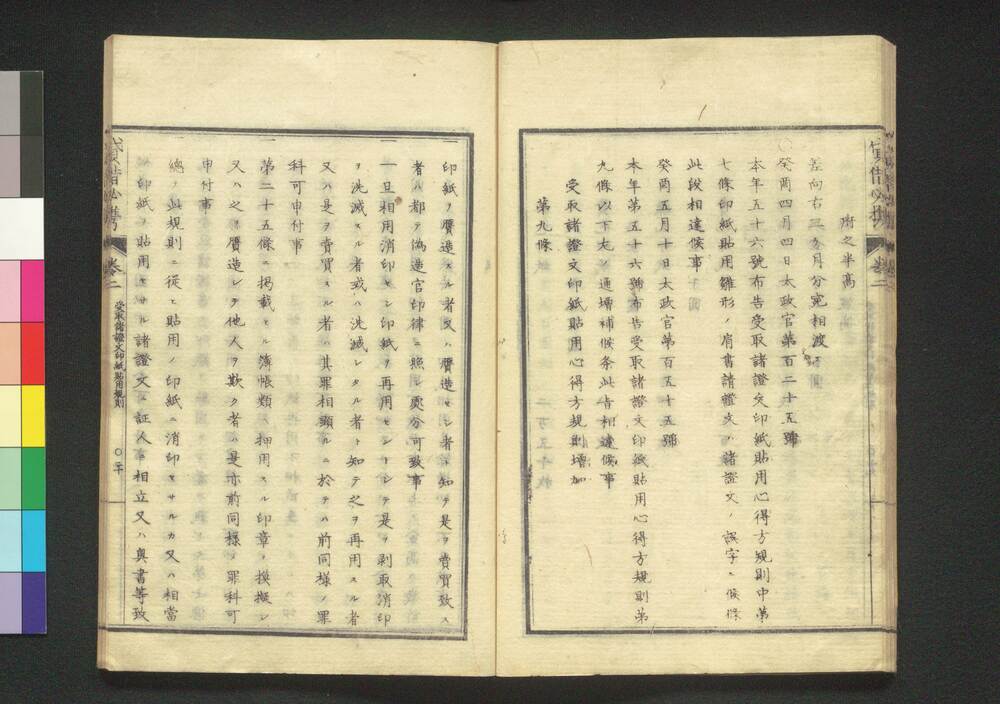 附之半高
差向右三ケ月分宛相渡
〇癸酉四月四日太政官第百二十五號
本年五十六號布告受取諸證文印紙貼用心得方規則中第
七條印紙貼用雛形ノ肩書請證文ハ諸證文ノ誤字ニ候條
此段相達候事
癸酉五月十日太政官第百五十五號
本年第五十六號布告受取諸證文印紙貼用心得方規則第
九條以下左ノ通増補候条此旨相達候事
受取諸證文印紙貼用心得方規則増加
第九條
印紙ヲ贋造スル者又ハ贋造セシ者ト知テ是ヲ賣買致ス
者ハ都テ偽造官印律ニ照シ処分可致事
一旦相用消印セシ印紙ヲ再用セントシテ是ヲ剥取消印
ヲ洗滅スル者或ハ洗滅シタル者ト知テ之ヲ再用スル者
又ハ是ヲ賣買スル者ハ其罪相顕ルニ於テハ前同様ノ罪
科可申付事
第二十五條ニ掲載セル簿帳類ヘ押用スル印章ヲ摸擬シ
又ハ之ヲ贋造シテ他人ヲ欺ク者ハ是亦前同様ノ罪科可
申付事
總テ此規則ニ從ヒ貼用ノ印紙ニ消印セサルカ又ハ相當
ノ印紙ヲ貼用セサル諸證文ヘ証人ニ相立又ハ奥書等致
貸借必携 巻二 受取諸證文印紙貼用規則 〇二十